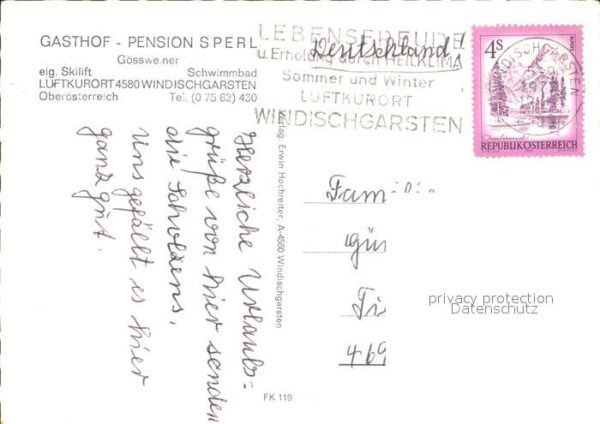 GASTHOF - PENSION SPERL
Gösswe ner
eig. Skilift Schwimmbad
LUFTKURORT 4580 WINDISCHGARSTEN
Oberösterreich Tel. (0 75 62) 430
LEBENSFREUDE
u. Erholung durch HEILKLIMA
Sommer und Winter
LUFTKURORT
WINDISCHGARSTEN
Deutschland!
4S
WINDISCHGARSTEN
REPUBLIK ÖSTERREICH
Herzliche Urlaubs=
grüße von hier senden
die Scholzens.
Uns gefällt es hier
ganz gut.
Verlag: Erwin Hochreiter, A-4580 Windischgarsten
Famili
Gün
Ti
469
privacy protection
Datenschutz
FK 119